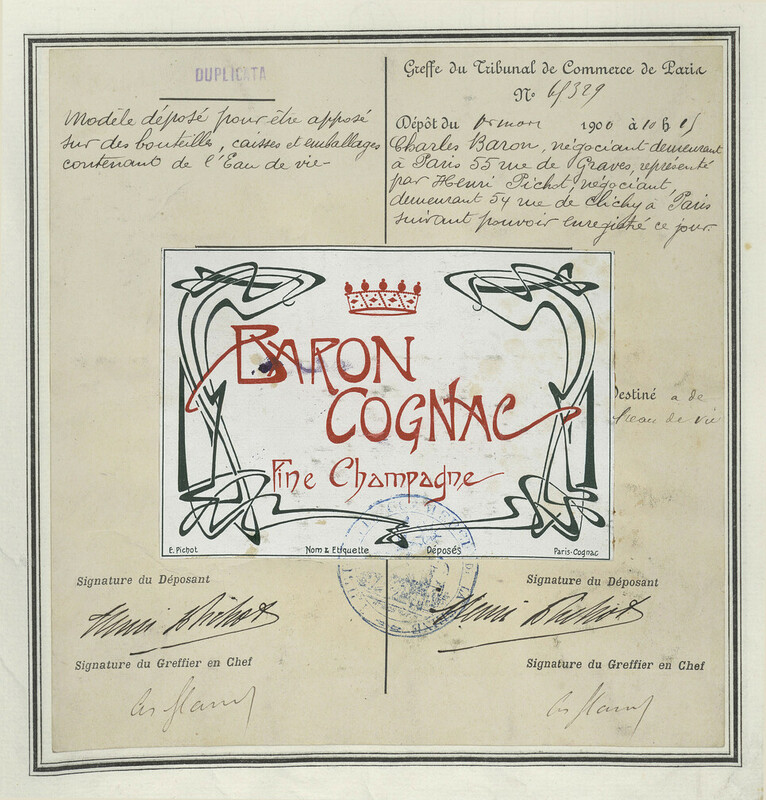 DUPLICATA
Modèle déposé pour être apposé
sur des bouteilles, caisses et emballages
contenant de l'Eau de vie
Greffe du Tribunal de Commerce de Paris
No 65329
Dépôt du 1er mars 1900 à 10 h 15
Charles Baron, négociant demeurant
à Paris 55 rue de Graves, représenté
par Henri Pichot, négociant,
demeurant 54 rue de Clichy à Paris
suivant pouvoir enregistré ce jour.
BARON
COGNAC
Fine Champagne
E. Pichot
Nom & Etiquette
Déposés
Paris-Cognac
Destiné a de
l'eau de vie
Signature du Déposant
Henri Pichot
Signature du Greffier en Chef
Signature du Déposant
Henri Pichot
Signature du Greffier en Chef